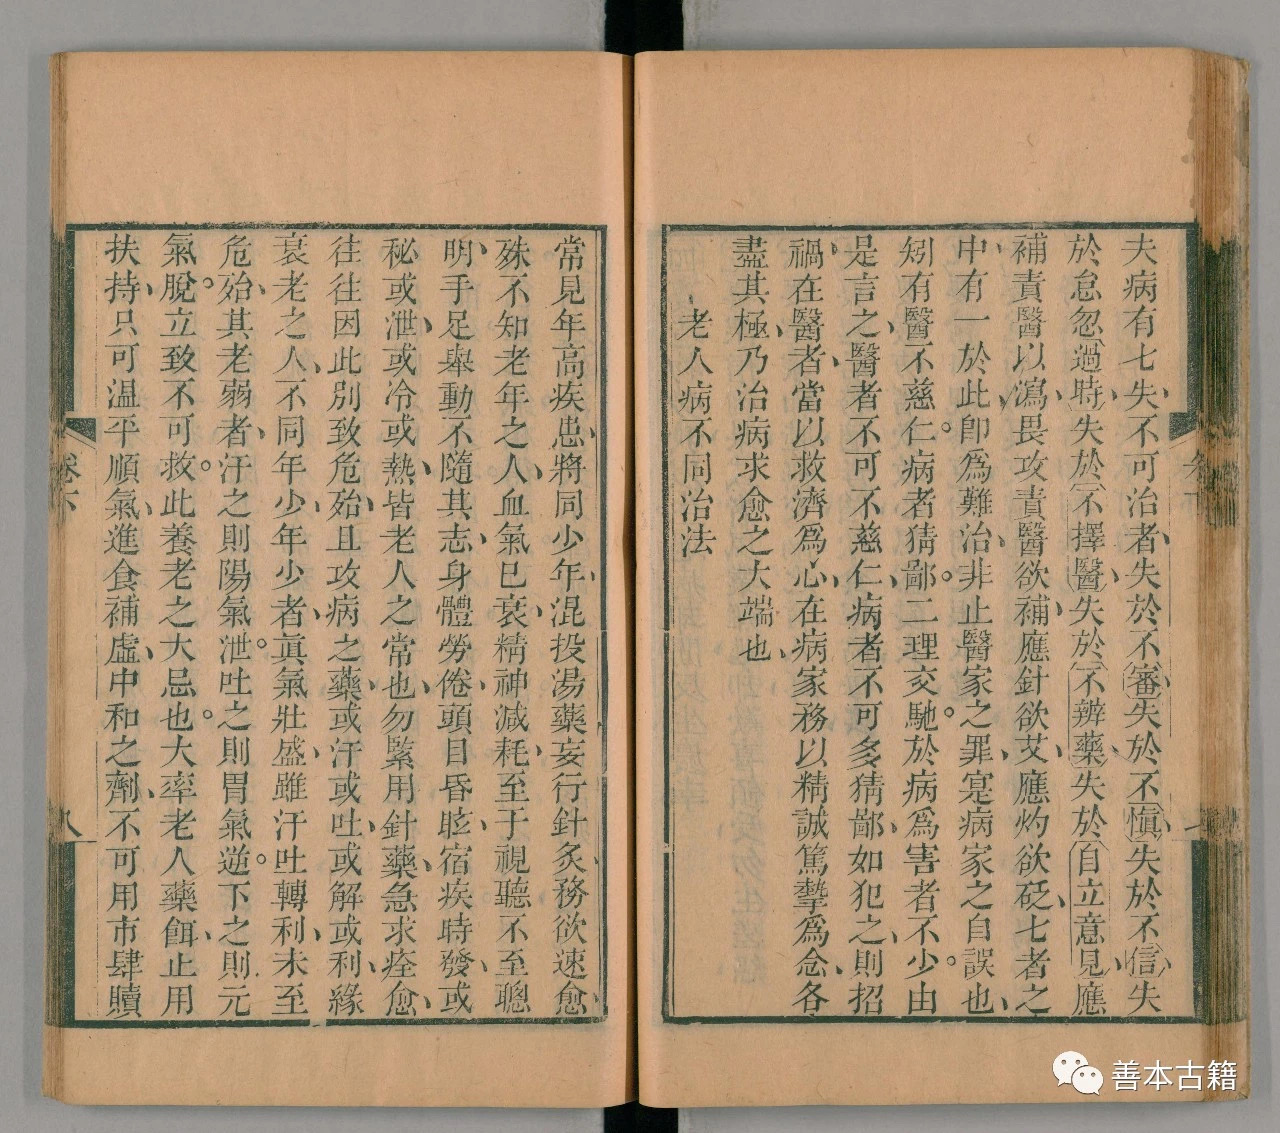 夫病有七失不可治者失於不審失於不慎失於不信失
於怠忽過時失於不擇醫失於不辨藥失於自立意見應
補責醫以瀉畏攻責醫欲補應針欲艾應灼欲砭七者之
中有一於此卽爲難治非止醫家之罪寔病家之自誤也
矧有醫不慈仁病者猜鄙二理交馳於病爲害者不少由
是言之醫者不可不慈仁病者不可多猜鄙如犯之則招
禍在醫者當以救濟爲心在病家務以精誠篤摰爲念各
盡其極乃治病求愈之大端也
老人病不同治法
常見年高疾患將同少年混投湯藥妄行針灸務欲速愈
殊不知老年之人血氣已衰精神減耗至于視聽不至聰
明手足舉動不隨其志身體勞倦頭目昏眩宿疾時發或
秘或泄或冷或熱皆老人之常也勿緊用針藥急求痊愈
往往因此別致危殆且攻病之藥或汗或吐或解或利緣
衰老之人不同年少年少者眞氣壯盛雖汗吐轉利未至
危殆其老弱者汗之則陽氣泄。吐之則胃氣逆。下之則元
氣脫。立致不可救。此養老之大忌也。大率老人藥餌止用
扶持只可溫平順氣進食補虛中和之劑不可用市肆贖
卷下
八
善本古籍